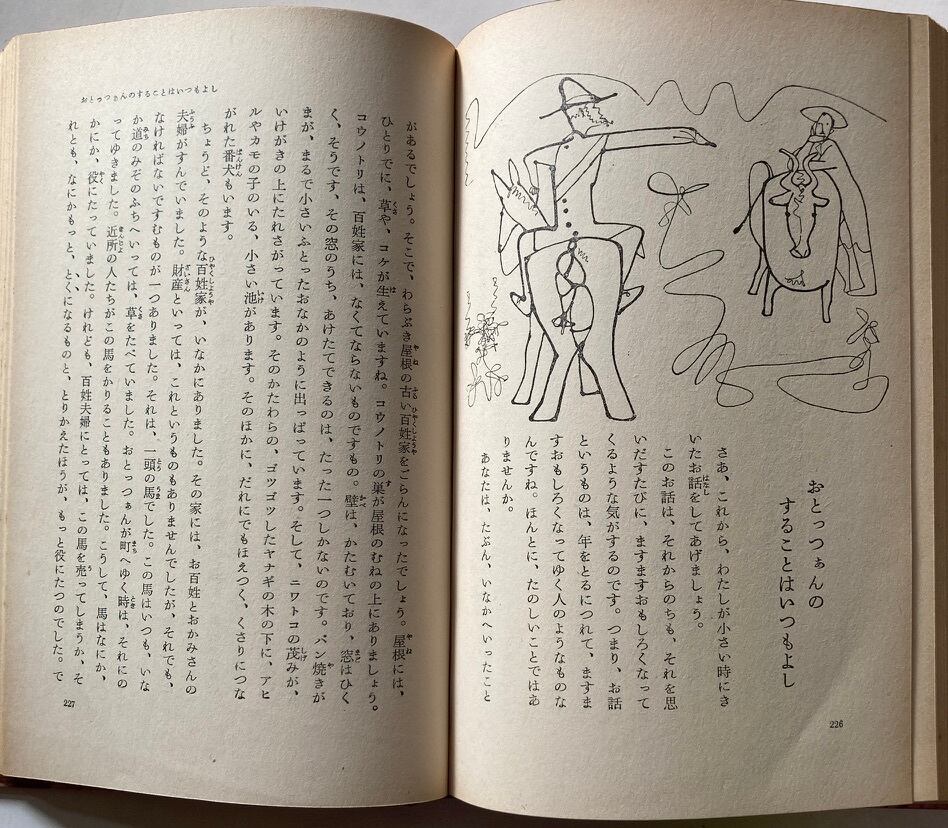 おとっつぁんの
することはいつもよし
さあ、これから、わたしが小さい時にき
いたお話をしてあげましょう。
このお話は、それからのちも、それを思
いだすたびに、ますますおもしろくなって
くるような気がするのです。つまり、お話
というものは、年をとるにつれて、ますま
すおもしろくなってゆく人のようなものな
んですね。ほんとに、たのしいことではあ
りませんか。
あなたは、たぶん、いなかへいったこと
226
おとっつぁんのすることはいつもよし
があるでしょう。そこで、わらぶき屋根の古い百姓家をごらんになったでしょう。屋根には、
ひとりでに、草や、コケが生えていますね。コウノトリの巣が屋根のむねの上にありましょう。
コウノトリは、百姓家には、なくてならないものですもの。壁は、かたむいており、窓はひく
く、そうです、その窓のうち、あけたてできるのは、たった一つしかないのです。パン焼きが
まが、まるで小さいふとったおなかのように出っぱっています。そして、ニワトコの茂みが、
いけがきの上にたれさがっています。そのかたわらの、ゴツゴツしたヤナギの木の下に、アヒ
ルやカモの子のいる、小さい池があります。そのほかに、だれにでもほえつく、くさりにつな
がれた番犬もいます。
ちょうど、そのような百姓家が、いなかにありました。その家には、お百姓とおかみさんの
夫婦がすんでいました。財産といっては、これというものもありませんでしたが、それでも、
なければないですむものが一つありました。それは、一頭の馬でした。この馬はいつも、いな
か道のみぞのふちへいっては、草をたべていました。おとっつぁんが町へゆく時は、それにの
ってゆきました。近所の人たちがこの馬をかりることもありました。こうして、馬はなにか、
かにか、役にたっていました。けれども、百姓夫婦にとっては、この馬を売ってしまうか、そ
れとも、なにかもっと、とくになるものと、とりかえたほうが、もっと役にたつのでした。で
227